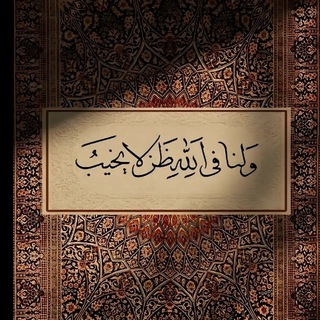 ولنا في اللهِ ظَن لا يخيبُ